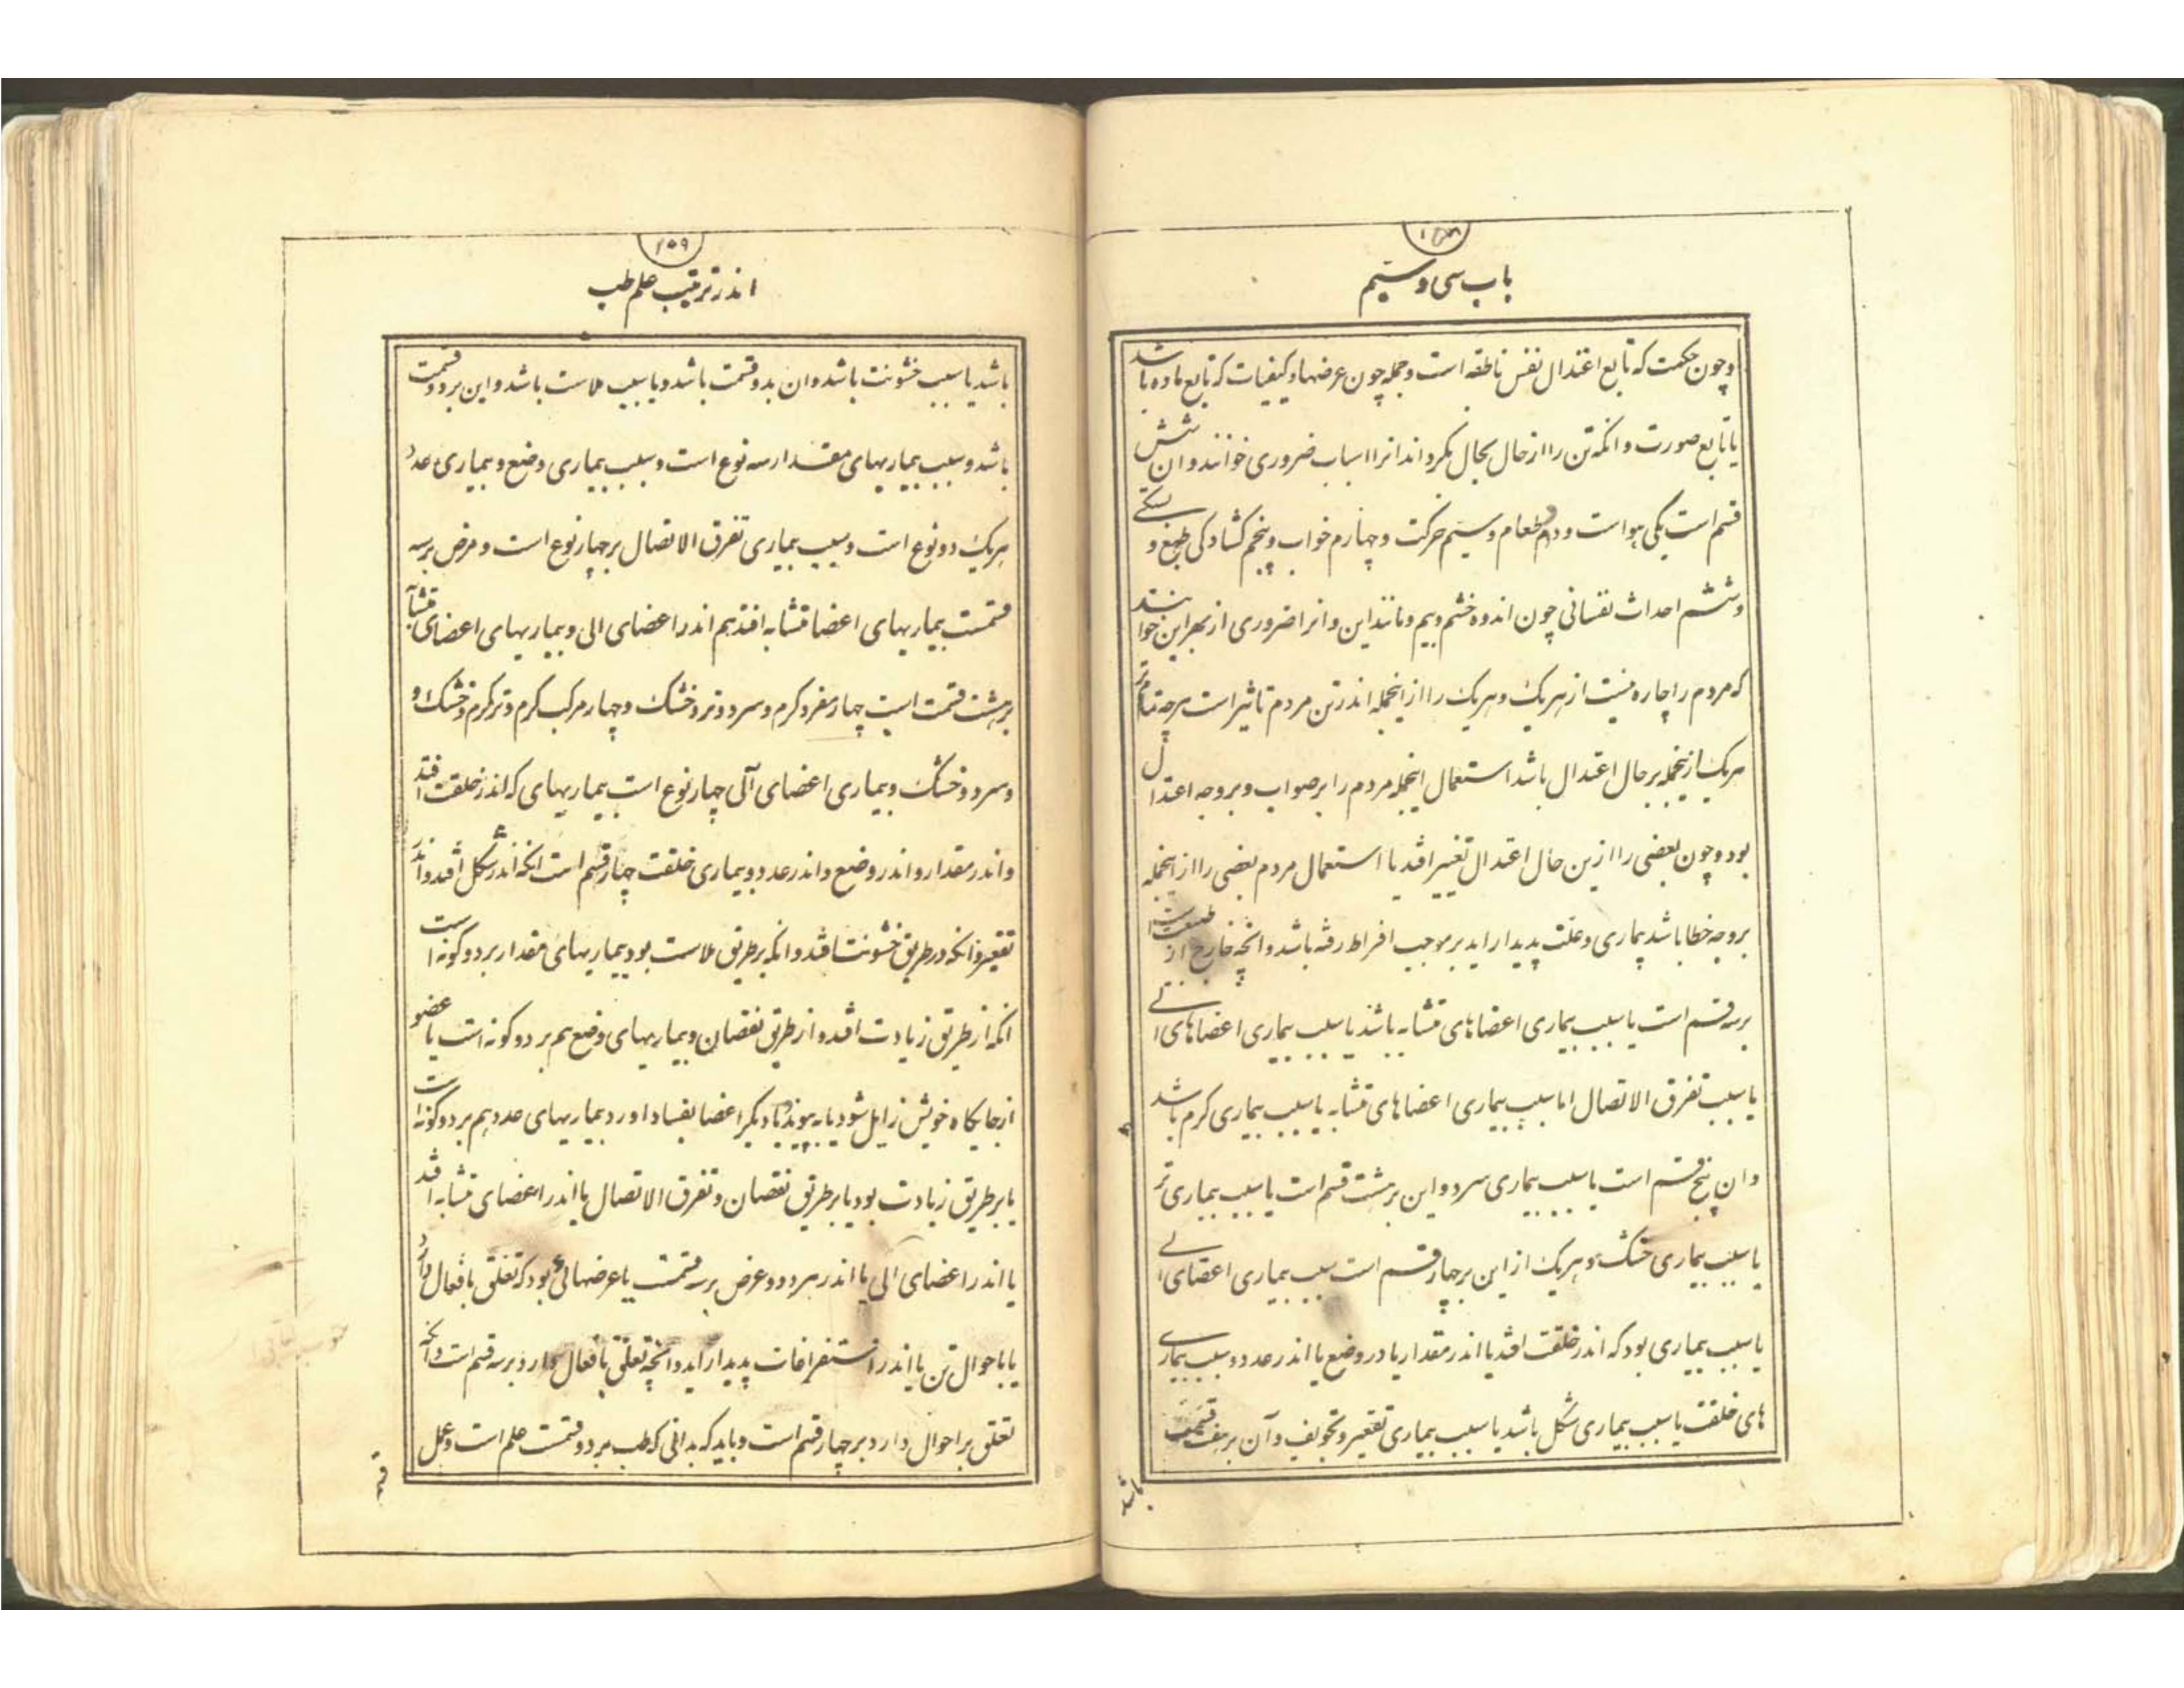 ۱۵۸
باب سی و سیم
وچون حکمت که تابع اعتدال نفس ناطقه است وجمله چون عرضها وکیفیات که تابع ماده باشد
یا تابع صورت وانکه تن را از حال بحال بکرداند انرا اسباب ضروری خوانند وان شش
قسم است یکی هواست ودوم طعام وسیم حرکت وچهارم خواب وپنجم کشادکی طبع و بستکی
وششم احداث نفسانی چون اندوه خشم وبیم ومانند این وانرا ضروری از بهر این خوانند
که مردم را چاره نیست از هریک وهریک را از اینجمله اندر تن مردم تاثیر است هرچه تمام تر
هریک ازینجمله برحال اعتدال باشد استعمال اینجمله مردم را بر صواب وبروجه اعتدال
بود وچون بعضی را ازین حال اعتدال تغییر افتد یا استعمال مردم بعضی را از اینجمله
بروجه خطا باشد بیماری وعلت پدیدار اید بر موجب افراط رفته باشد وانچه خارج از طبیعت است
برسه قسم است یا سبب بیماری اعضاهای متشابه باشد یا سبب بیماری اعضاهای الی
یا سبب تفرق الاتصال اما سبب بیماری اعضاهای متشابه یا سبب بیماری کرم باشد
وان پنج قسم است یا سبب بیماری سرد واین برهشت قسم است یا سبب بیماری تر
یا سبب بیماری خشک وهریک از این برچهار قسم است سبب بیماری اعضای الی
یا سبب بیماری بود که اندر خلقت افتد یا اندر مقدار یا در وضع یا اندر عدد وسبب بیماری
های خلقت یا سبب بیماری شکل باشد یا سبب بیماری تقعیر وتجویف وآن برهفت قسمت
باشد
۱۵۹
اندر ترتیب علم طب
باشد یا سبب خشونت باشد وان بدو قسمت باشد ویا سبب ملاست باشد واین بردو قسمت
باشد وسبب بیماریهای مقدار سه نوع است وسبب بیماری وضع وبیماری عدد
هریک دو نوع است وسبب بیماری تفرق الاتصال برچهار نوع است ومرض برسه
قسمت بیماریهای اعضا متشابه افتد هم اندر اعضای الی وبیماریهای اعضای متشابه
برهشت قسمت است چهار مفرد کرم وسرد وتر وخشک وچهار مرکب کرم وتر کرم وخشک و
وسرد وخشک وبیماری اعضای آلی چهار نوع است بیماریهای که اندر خلقت افتد
واندر مقدار واندر وضع واندر عدد وبیماری خلقت چهار قسم است انکه اندر شکل افتد واندر
تقعیر وانکه درطریق خشونت افتد وانکه برطریق ملاست بود بیماریهای مقدار بردو کونه است
انکه از طریق زیادت افتد و از طریق نقصان وبیماریهای وضع هم بر دو کونه است یا عضو
از جایکاه خویش زایل شود یا به پیوند با دیکر اعضا بفساد اورد بیماریهای عدد هم بردو کونه است
یا برطریق زیادت بود یا برطریق نقصان وتفرق الاتصال یا اندر اعضای متشابه افتد
یا اندر اعضای الی یا اندر هردو وعرض برسه قسمت یا عرضهائی بود که تعلق بافعال دارد
یا باحوال تن یا اندر استفراغات پدیدار اید وانچه تعلق بافعال دارد برسه قسم است وانچه
تعلق براحوال دارد برچهار قسم است وباید که بدانی که طب بر دو قسمت علم است وعمل